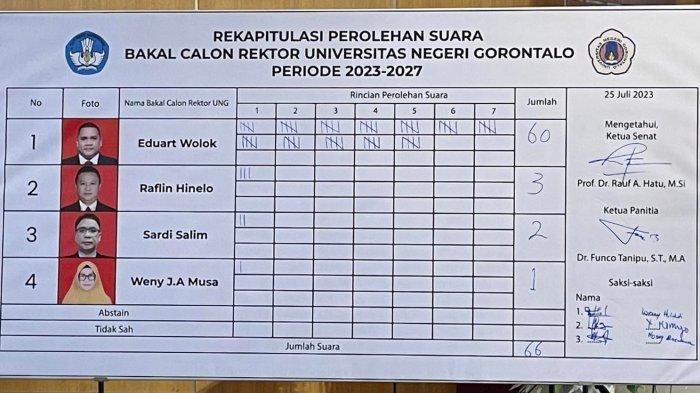 REKAPITULASI PEROLEHAN SUARA
BAKAL CALON REKTOR UNIVERSITAS NEGERI GORONTALO
PERIODE 2023-2027
No Foto Nama Bakal Calon Rektor UNG Rincian Perolehan Suara Jumlah
1 2 3 4 5 6 7
1 Eduart Wolok 60
2 Raflin Hinelo 3
3 Sardi Salim 2
4 Weny J.A Musa 1
Abstain
Tidak Sah
Jumlah Suara 66
25 Juli 2023
Mengetahui,
Ketua Senat
Prof. Dr. Rauf A. Hatu, M.Si
Ketua Panitia
Dr. Funco Tanipu, S.T., M.A
Saksi-saksi
Nama
1.
2.
3.